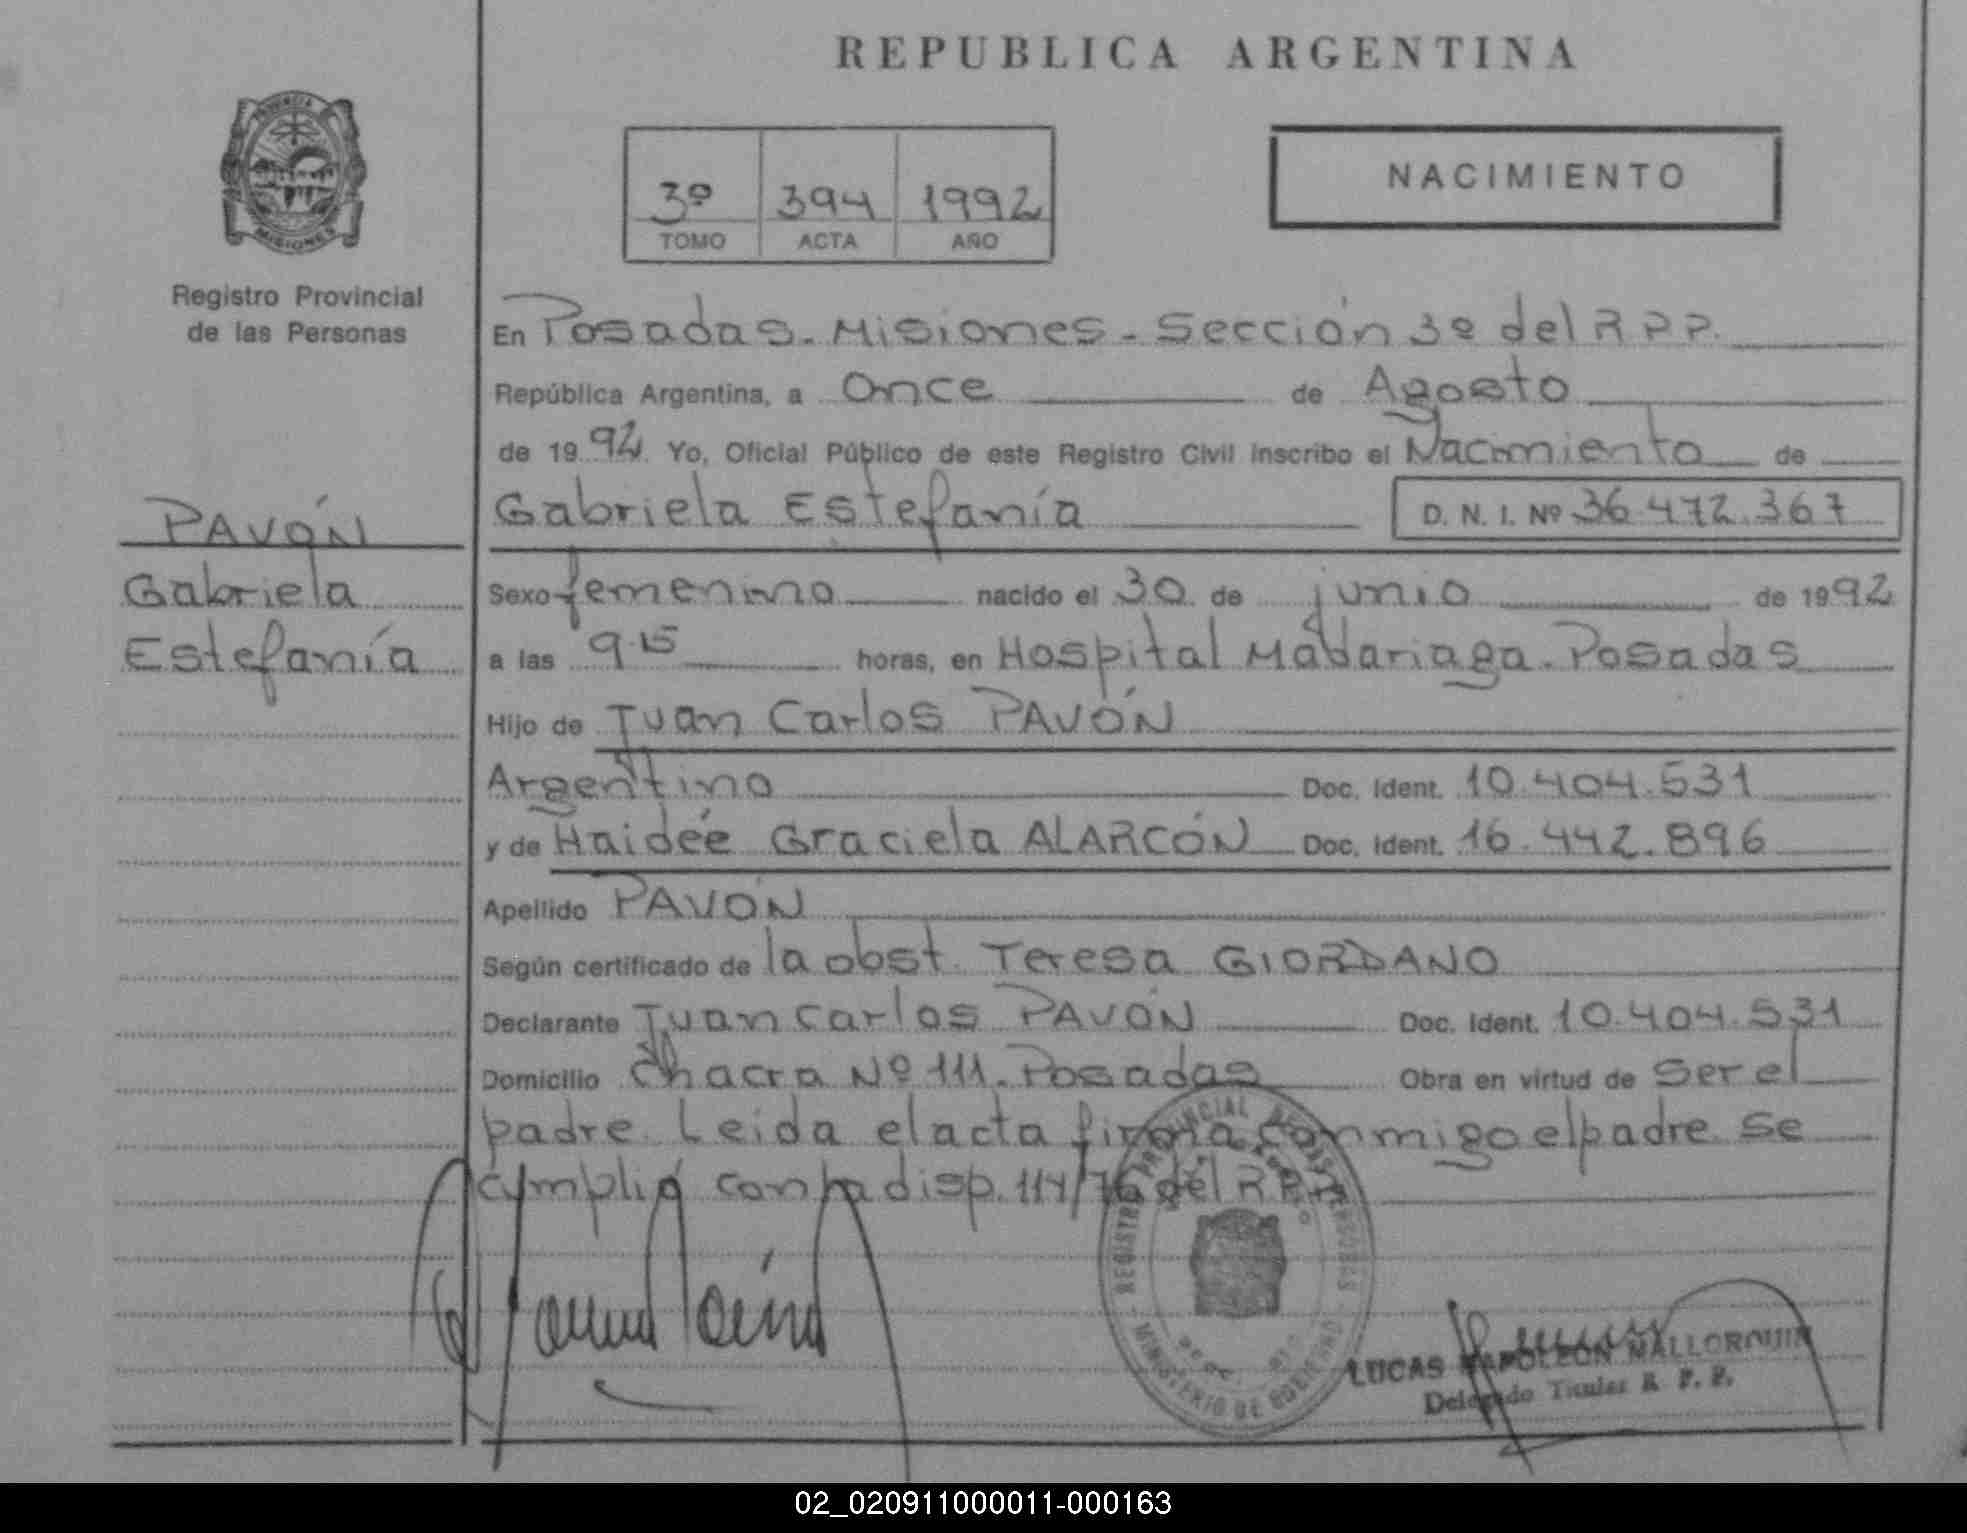 REPUBLICA ARGENTINA
PROVINCIA
MISIONES
Registro Provincial
de las Personas
3º 394 1992
TOMO ACTA AÑO
NACIMIENTO
En Posadas. Misiones - Sección 3º del R P P.
República Argentina, a Once de Agosto
de 1992. Yo, Oficial Público de este Registro Civil inscribo el Nacimiento de
PAVÓN
Gabriela Estefanía D. N. I. Nº 36.472.367
Gabriela
Estefanía
Sexo femenino nacido el 30 de junio de 1992
a las 9.15 horas, en Hospital Madariaga. Posadas
Hijo de Juan Carlos PAVÓN
Argentino Doc. Ident. 10.404.531
y de Haidée Graciela ALARCÓN Doc. Ident. 16.442.896
Apellido PAVÓN
Según certificado de la obst. Teresa GIORDANO
Declarante Juan Carlos PAVÓN Doc. Ident. 10.404.531
Domicilio Chacra Nº 111. Posadas Obra en virtud de ser el
padre. Leida el acta firma conmigo el padre. Se
cumplió con la disp. 114/76 del R.P.P.
REGISTRO PROVINCIAL DE LAS PERSONAS
MINISTERIO DE GOBIERNO
LUCAS NAPOLEON MALLORQUIN
Delegado Titular R. P. P.
02_020911000011-000163